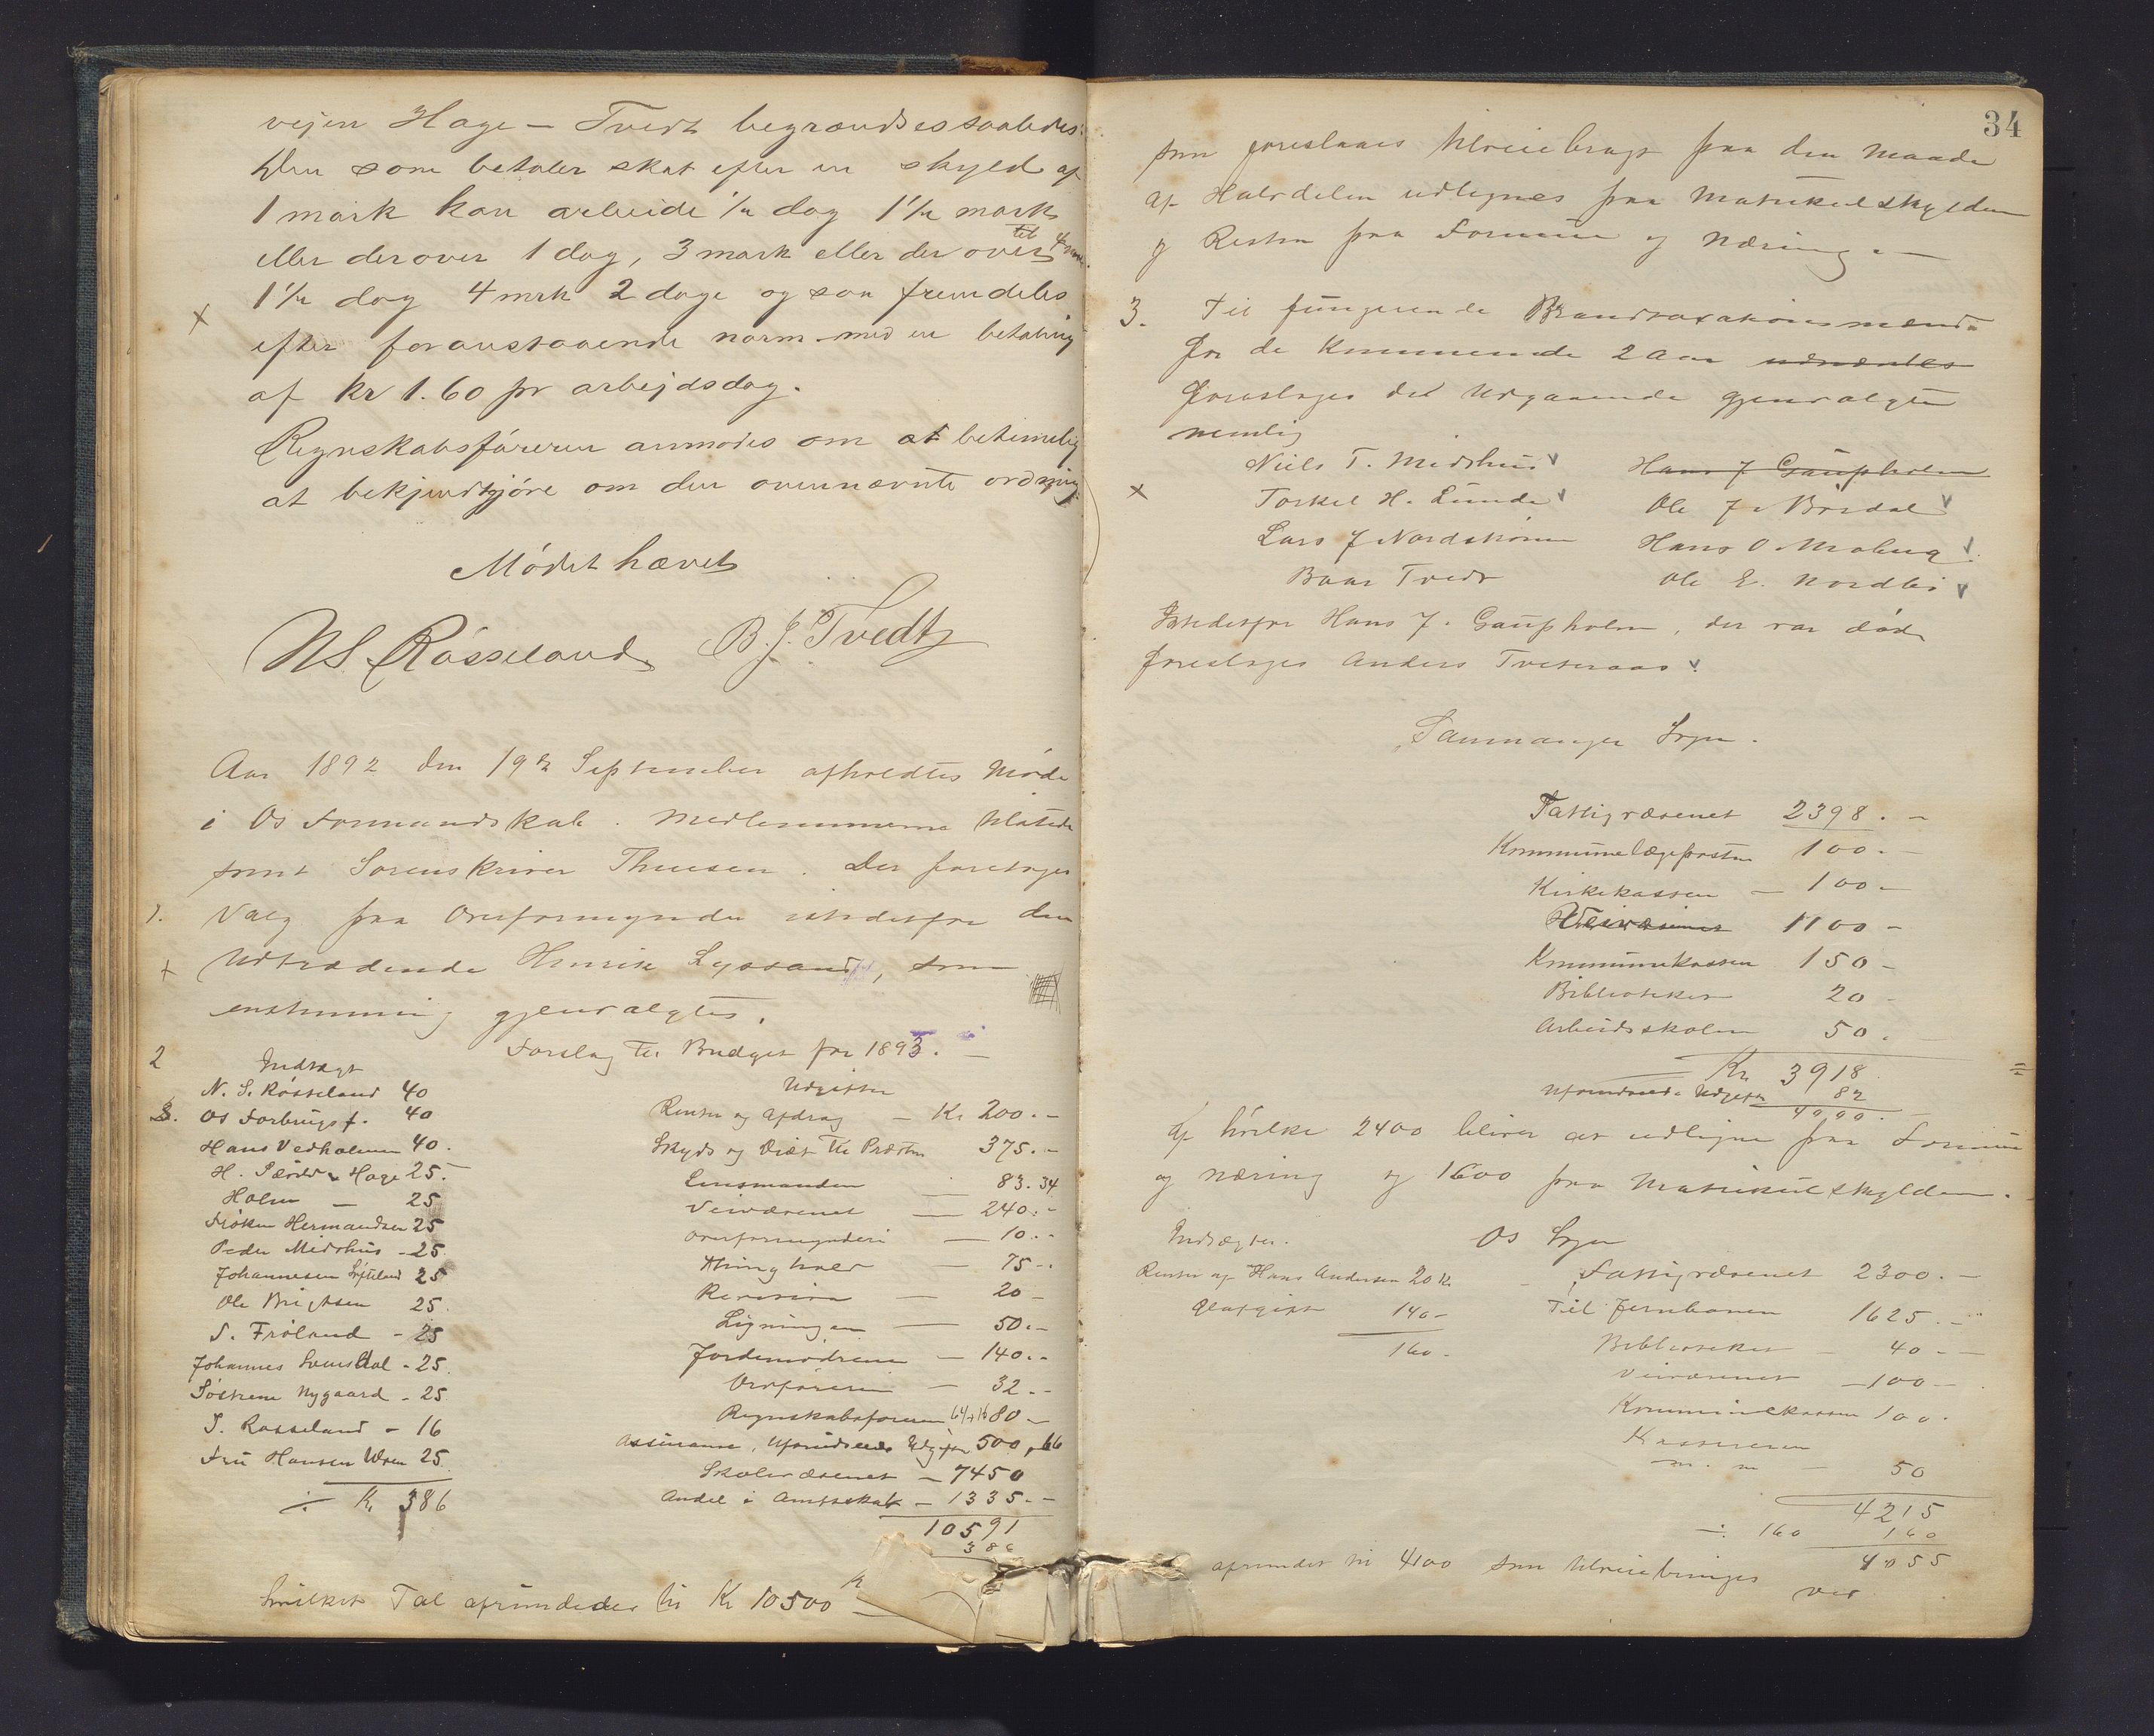 vejen Hage – Tvedt begrændses saaledes:
Den som betaler skat efter en skyld af
1 mark kan arbeide ½ dag 1½ mark
eller derover 1 dag, 3 mark eller derover til 4 mrk.
1½ dag 4 mrk 2 dage og saa fremdeles
efter foranstaaende norm med en betaling
af kr 1.60 pr arbejdsdag.
Regnskabsføreren anmodes om at betimelig
at bekjendtgjøre om den ovennævnte ordning
Mødet hævet
N S. Røsseland B. J. Tvedt
Aar 1892 den 19de September afholdtes Møde
i Os Formandskab. Medlemmerne tilstede
samt Sorenskriver Thuesen. Der foretoges
1. Valg paa Overformynder istedetfor den
Udtrædende Henrik Lyssand, som
enstemmig gjenvalgtes.
2 Forslag til Budget for 1893. –
Indtægt
N. S. Røsseland 40
3. Os Forbrugsf. 40
Hans Vedholmen 40.
H. Hage 25.
Holm – 25
Frøken Hermandsen 25
Peder Midthus - 25.
Johannesen 25
Ole Brigtsen 25.
S. Frøland - 25
Johannes Svensdal - 25.
Søstrene Nygaard - 25
S. Røsseland - 16
Fru Hansen Uven 25.
÷ Kr 386
Udgifter
Renter og Afdrag – Kr 200. -
Skyds og Diæt til Præsten 375. -
Lensmanden 83.34
Veivæsenet – 240. -
Overformynderi – 10. -
Thinghold – 75 -
Revision – 20 -
Ligningen – 50. -
Jordemødrene – 140. -
Ordføreren – 32. -
Regnskabsføreren 64+16 80 -
Assurance, Uforudseede Udgifter 500,66
Skolevæsenet – 7450
Andel i Amtsskat – 1335. -
10591
386
hvilket Tal afrundedes til Kr 10500
34
som foreslaaes tilveiebragt paa den Maade
at Halvdelen udlignes paa Matrikulskylden
og Resten paa Formue og Næring. –
3. Til fungerende Brandtaxationsmænd
for de kommende 2 Aar udnævntes
foresloges det Udgaaende gjenvalgte
nemlig
Niels T. Midthus Hans J Gaupholm
Torkel H. Lunde Ole J. Bordal
Lars J Nordstrønen Hans O. Moberg
Baar Tvedt Ole E. Nordbø
Istedetfor Hans J. Gaupholm, der var død
foresloges Anders Tveteraas.
Sammanger Sogn.
Fattigvæsenet 2398. -
Kommunelægeposten 100. -
Kirkekassen – 100 -
Veivæsenet 1100 -
Kommunekassen 150 -
Bibliotheket 20 -
Arbeidsskolen 50. -
Kr 3918
Uforudseede Udgifter 82
4000. -
af hvilke 2400 bliver at udligne paa Formue
og Næring og 1600 paa Matrikulskylden.
Os Sogn
Indtægter.
Renter af Hans Andersen 20 Kr.
140 -
160 -
Fattigvæsenet 2300. -
Til Jernbanen 1625. -
Bibliotheket – 40 -
Veivæsenet – 100 -
Kommunekassen 100 -
Kassereren
m. m – 50
4215
÷ 160 160
4055
afrundet til 4100 som tilveiebringes
ved